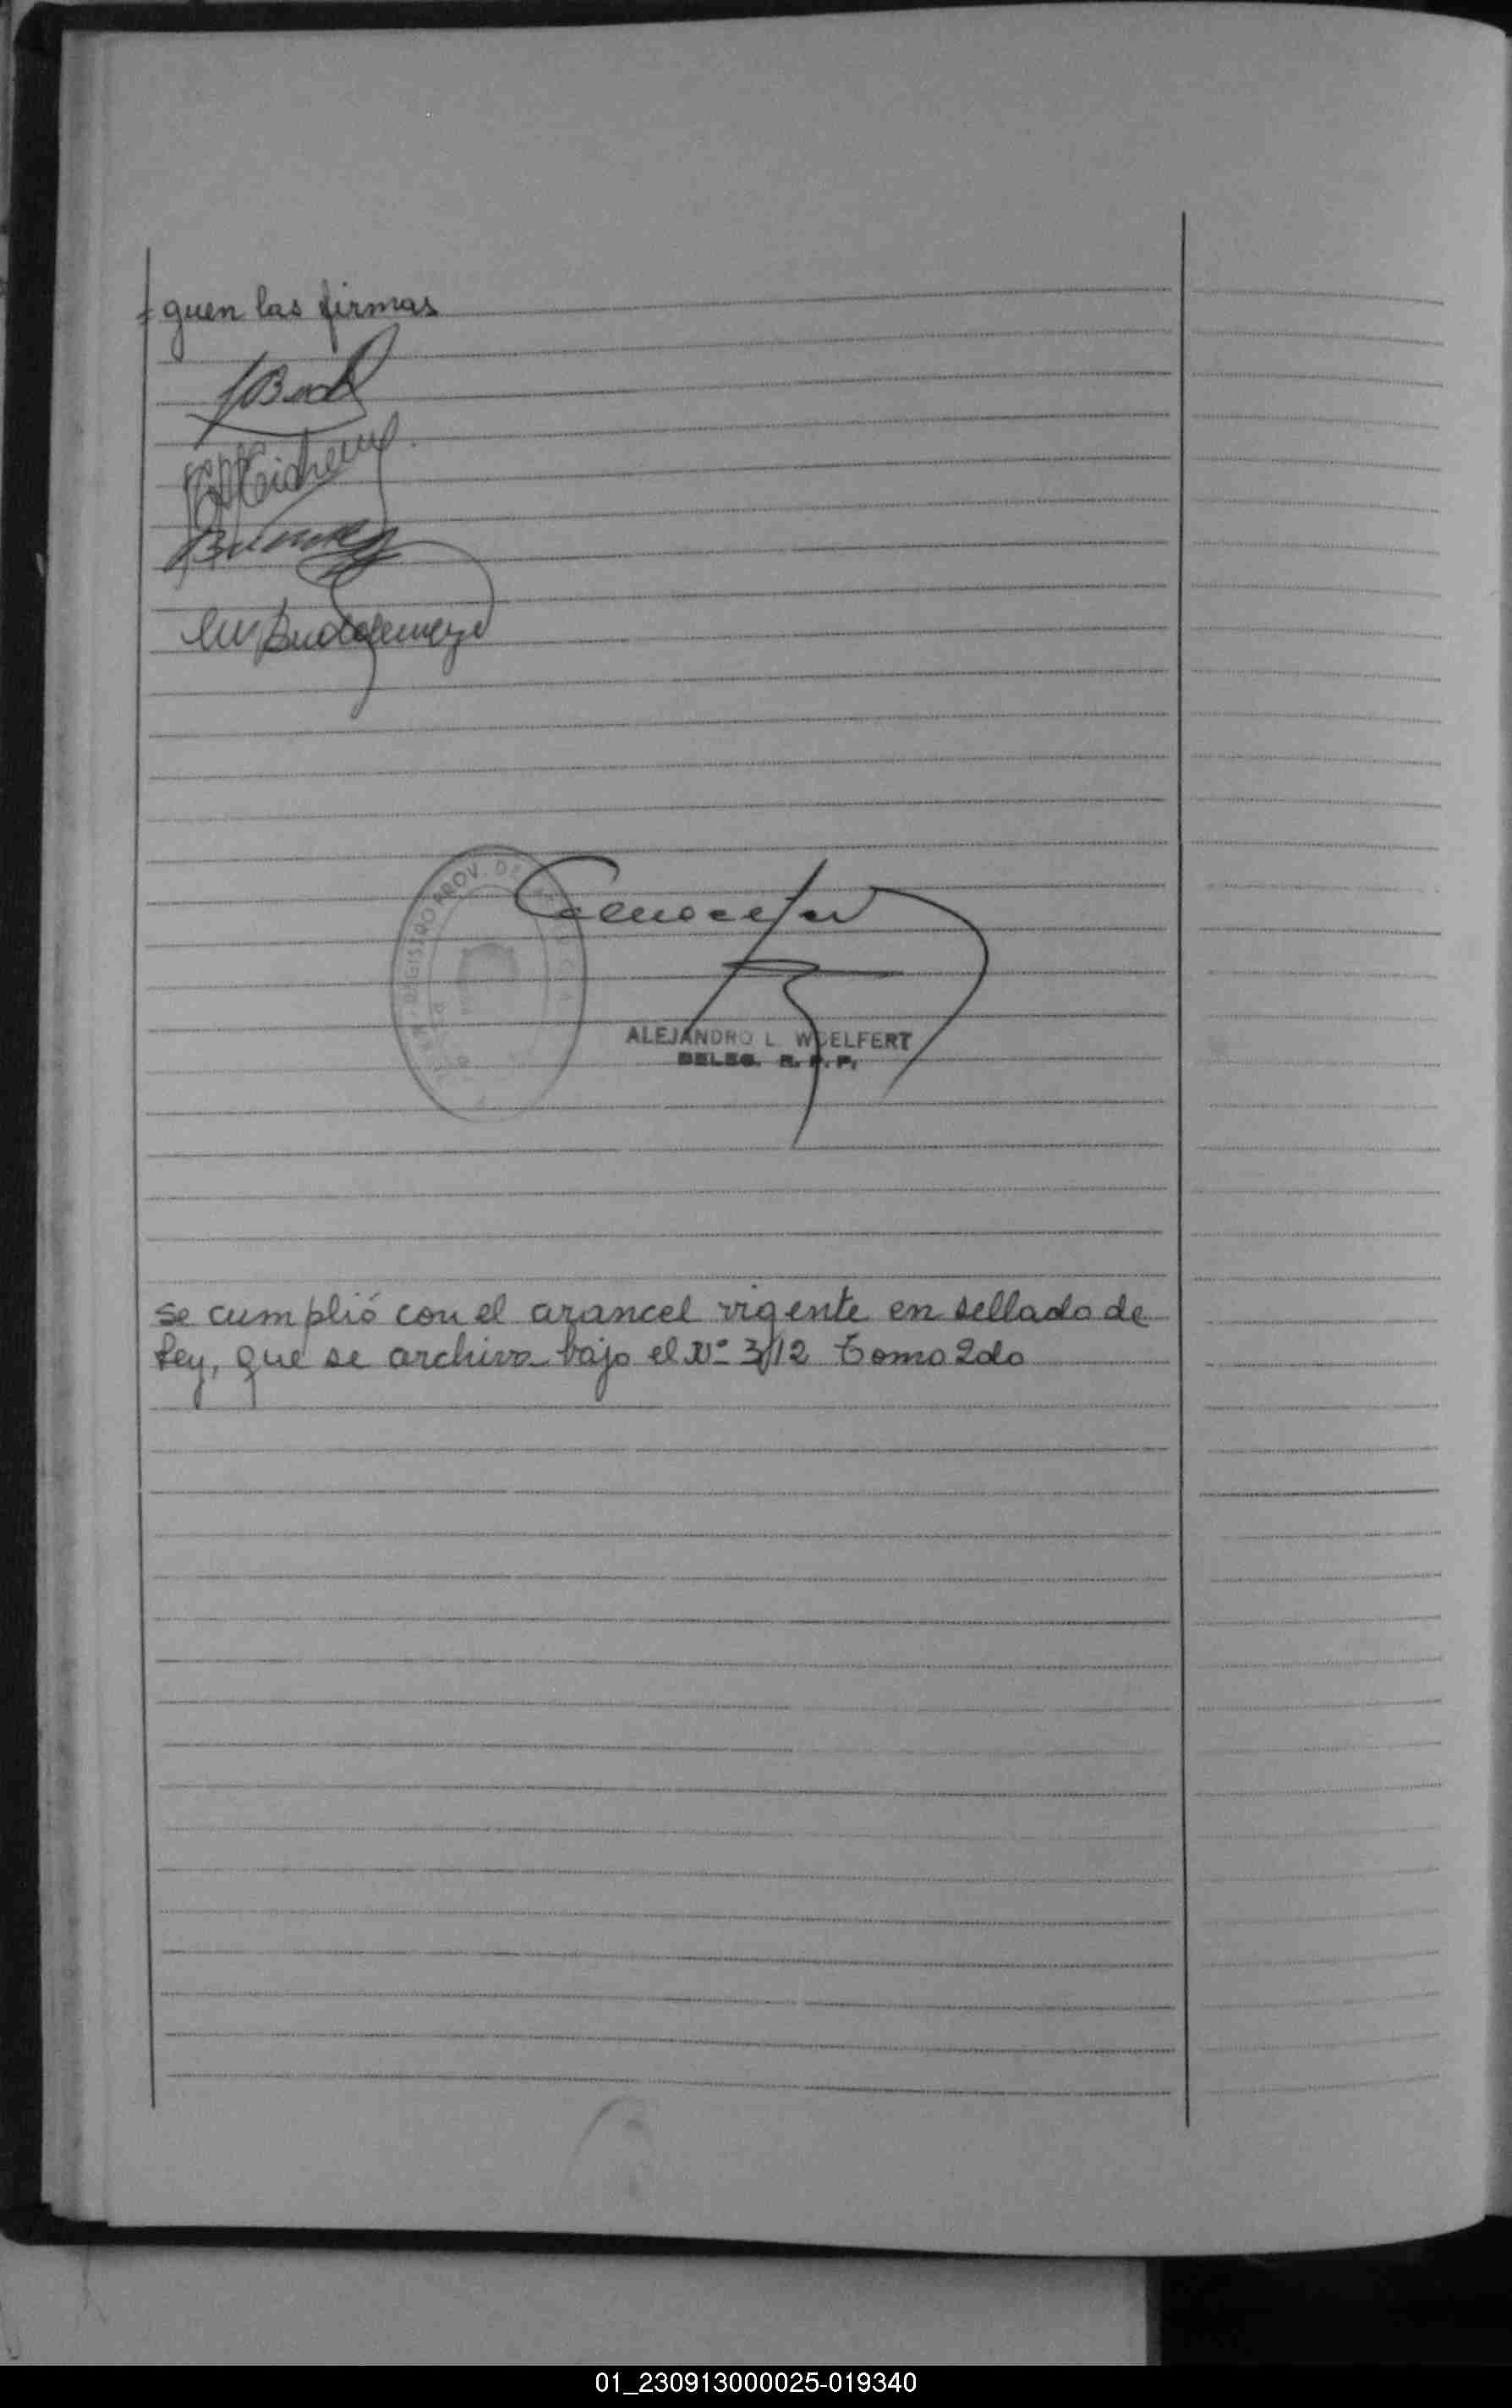 guen las firmas
REGISTRO PROV. DE
ALEJANDRO L. WOELFERT
DELEG. R. P. P.
se cumplió con el arancel vigente en sellado de
Ley, que se archiva bajo el Nº 3/12 Tomo 2do
01_230913000025-019340